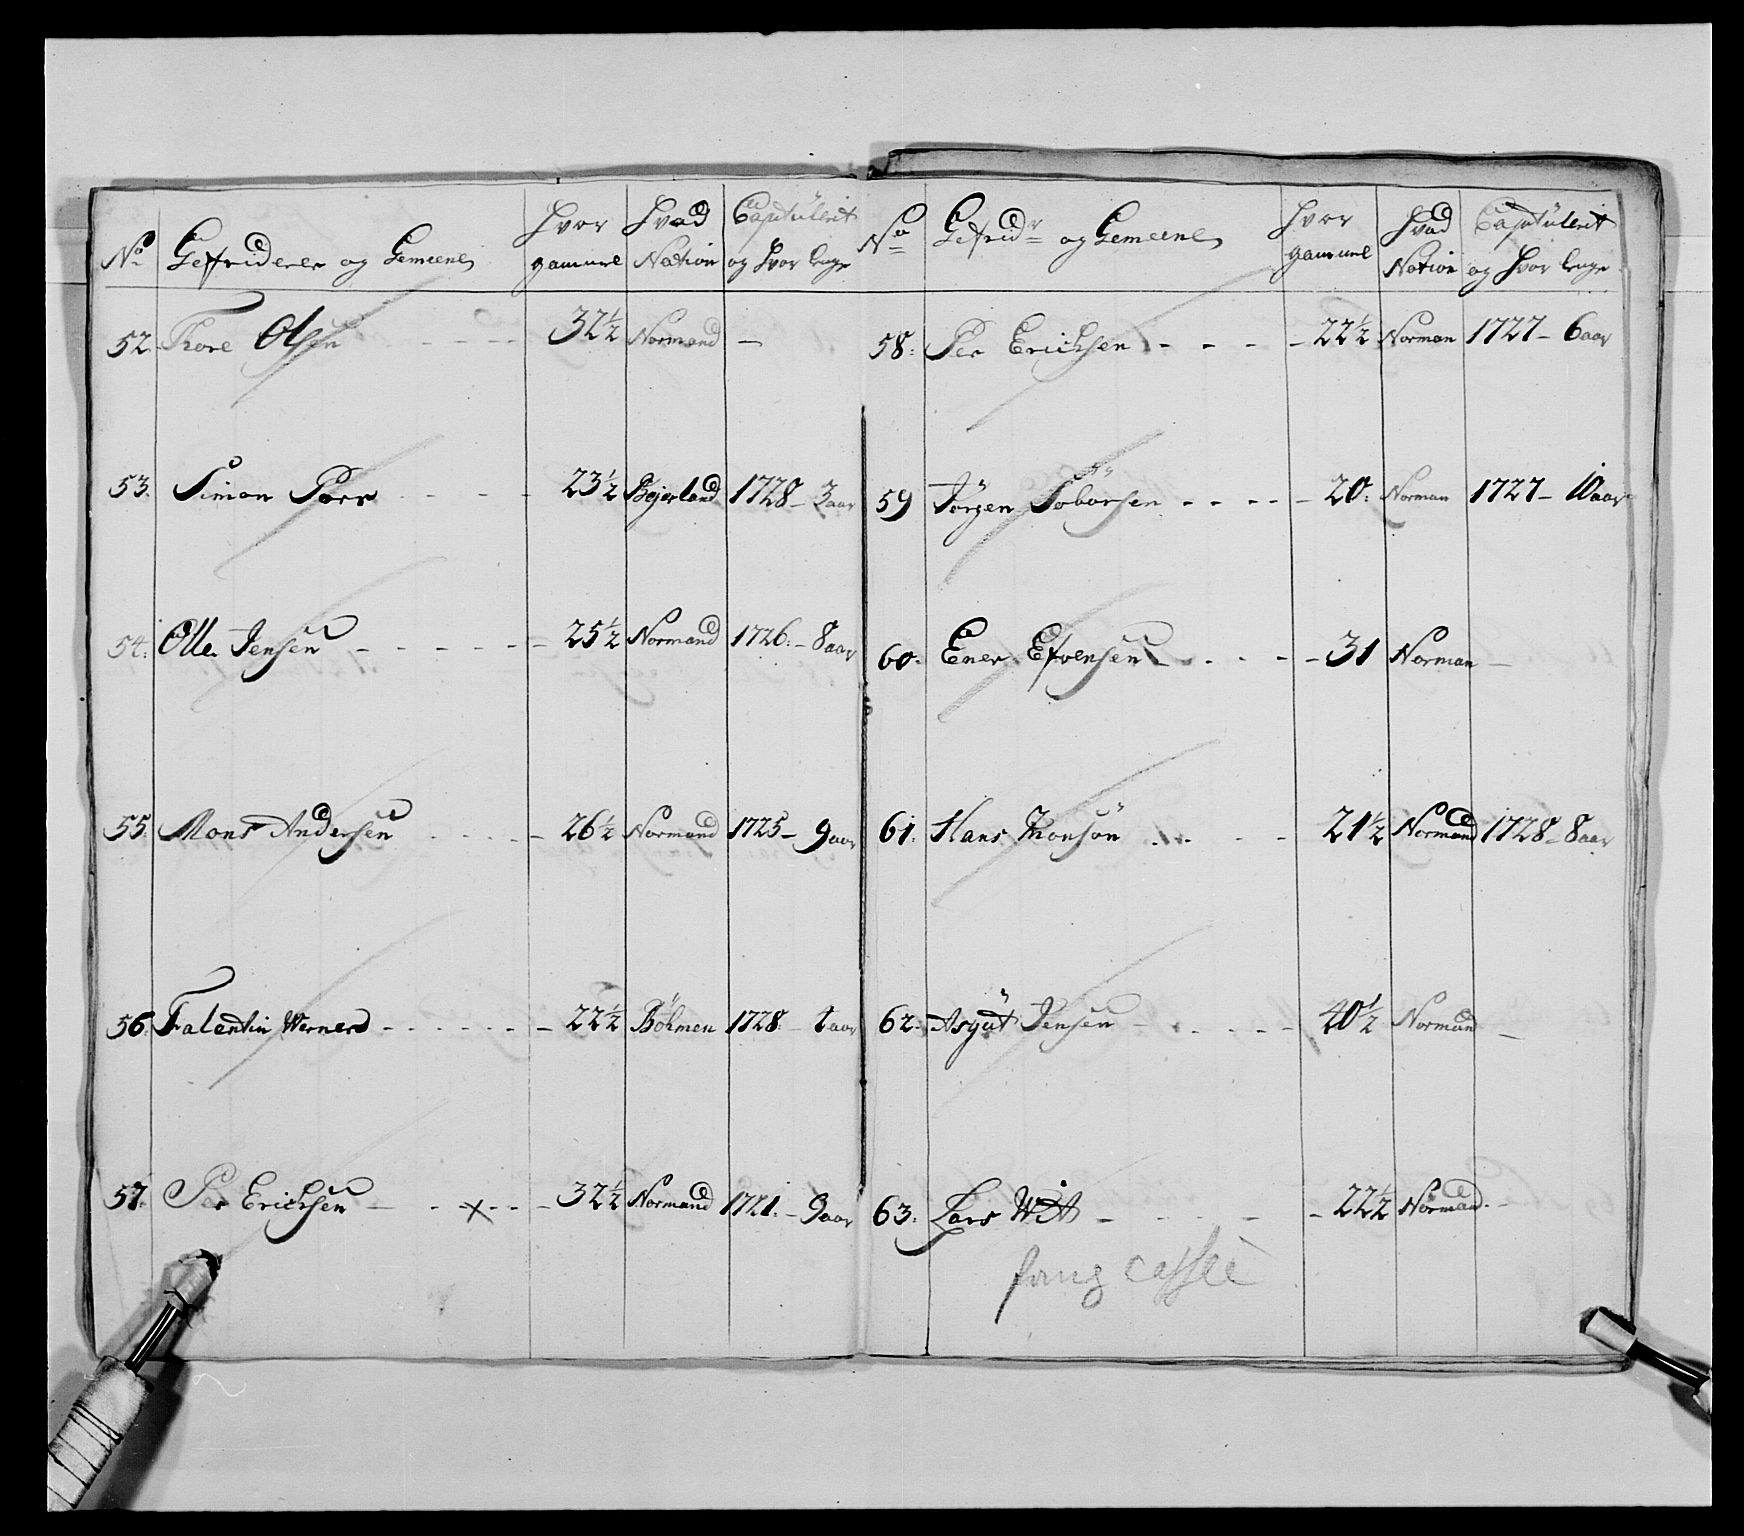 No Gefriderer og Gemeene Hvor gammel Hvad Nation Captülerit og hvor lenge
52. Thore Olsen - - - - - 32½ Normand —
53. Simon Parr - - - - 23½ Bejerland 1728 - 3 aar
54. Olle Jensen - - - - - - 25½ Normand 1726. - 8 aar
55. Mons Andersen - - - - - 26½ Normand 1725 - 9 aar
56. Falentin Werner - - - - - - - 22½ Böhmen 1728 - 1 aar
57. Per Erichsen - - x - - - 32½ Normand 1721. - 9 aar
No Gefridr og Gemeene Hvor gammel Hvad Nation Captülerit og hvor lenge
58. Per Erichsen - - - - - 22½ Norman 1727 - 6 aar
59 Jörgen - - - - - 20. Norman 1727 - 10 aar
60. Ener Efvensen - - - - - 31 Norman —
61. Hans Thonsön - - - - 21½ Normand 1728 - 8 aar
62. Asgüt Jensen - - - - - 40½ Normand —
63. Lars Wit - - - - - 22½ Normand. -